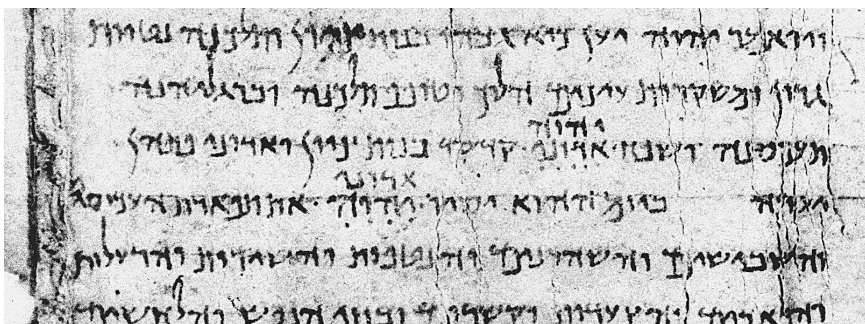 ויואמר יהוה יען כיא גבהו בנות ציון ותלכנה נטוות
גרון ומשקרות עינים הלך וטופף תלכנה וברגליהנה
יהוה
תעכסנה ושפח אדוני קדקד בנות ציון ואדוני פתהן
אדוני
יערה ביום ההוא יסיר יהוה את תפארת העכסים
והשבישים והשהרנים והנטפות והשירות והרעלות
והפארים והצעדות והקשרים ובתי הנפש והלחשים